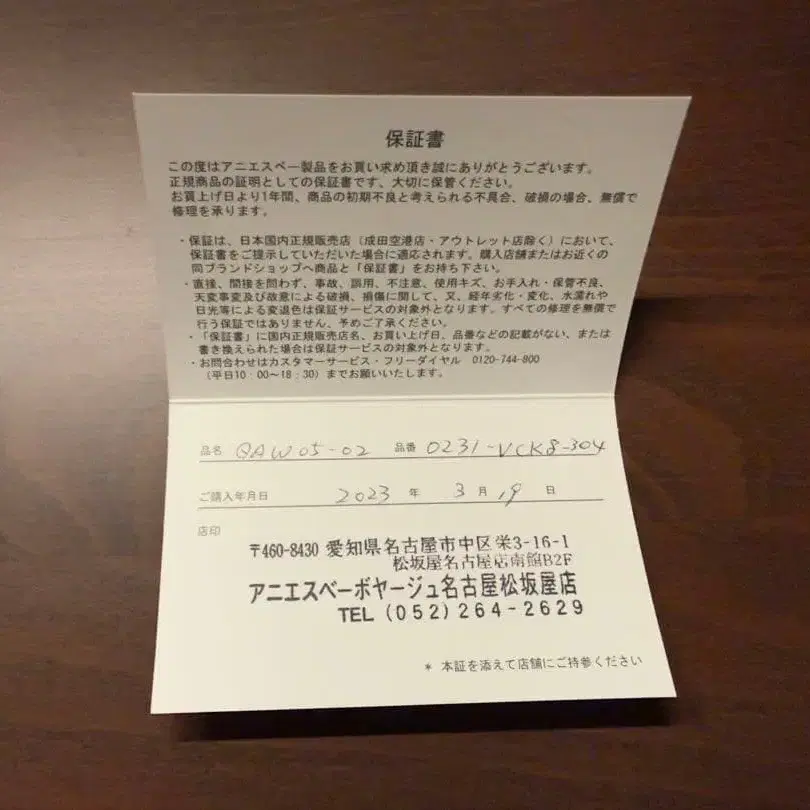 保証書
この度はアニエスベー製品をお買い求め頂き誠にありがとうございます。
正規商品の証明としての保証書です、大切に保管ください。
お買上げ日より1年間、商品の初期不良と考えられる不具合、破損の場合、無償で
修理を承ります。
・保証は、日本国内正規販売店（成田空港店・アウトレット店除く）において、
保証書をご提示していただいた場合に適応されます。購入店舗またはお近くの
同ブランドショップへ商品と「保証書」をお持ち下さい。
・直接、間接を問わず、事故、誤用、不注意、使用キズ、お手入れ・保管不良、
天変事変及び故意による破損、損傷に関して、又、経年劣化・変化、水濡れや
日光等による変退色は保証サービスの対象外となります。すべての修理を無償で
行う保証ではありません、予めご了承ください。
・「保証書」に国内正規販売店名、お買い上げ日、品番などの記載がない、または
書き換えられた場合は保証サービスの対象外となります。
・お問合わせはカスタマーサービス・フリーダイヤル 0120-744-800
（平日10：00〜18：30）までお願いいたします。
品名 QAW05-02 品番 0231-VCK8-304
ご購入年月日 2023 年 3 月 19 日
店印
〒460-8430 愛知県名古屋市中区栄3-16-1
松坂屋名古屋店南館B2F
アニエスベーボヤージュ名古屋松坂屋店
TEL (052) 264-2629
* 本証を添えて店舗にご持参ください